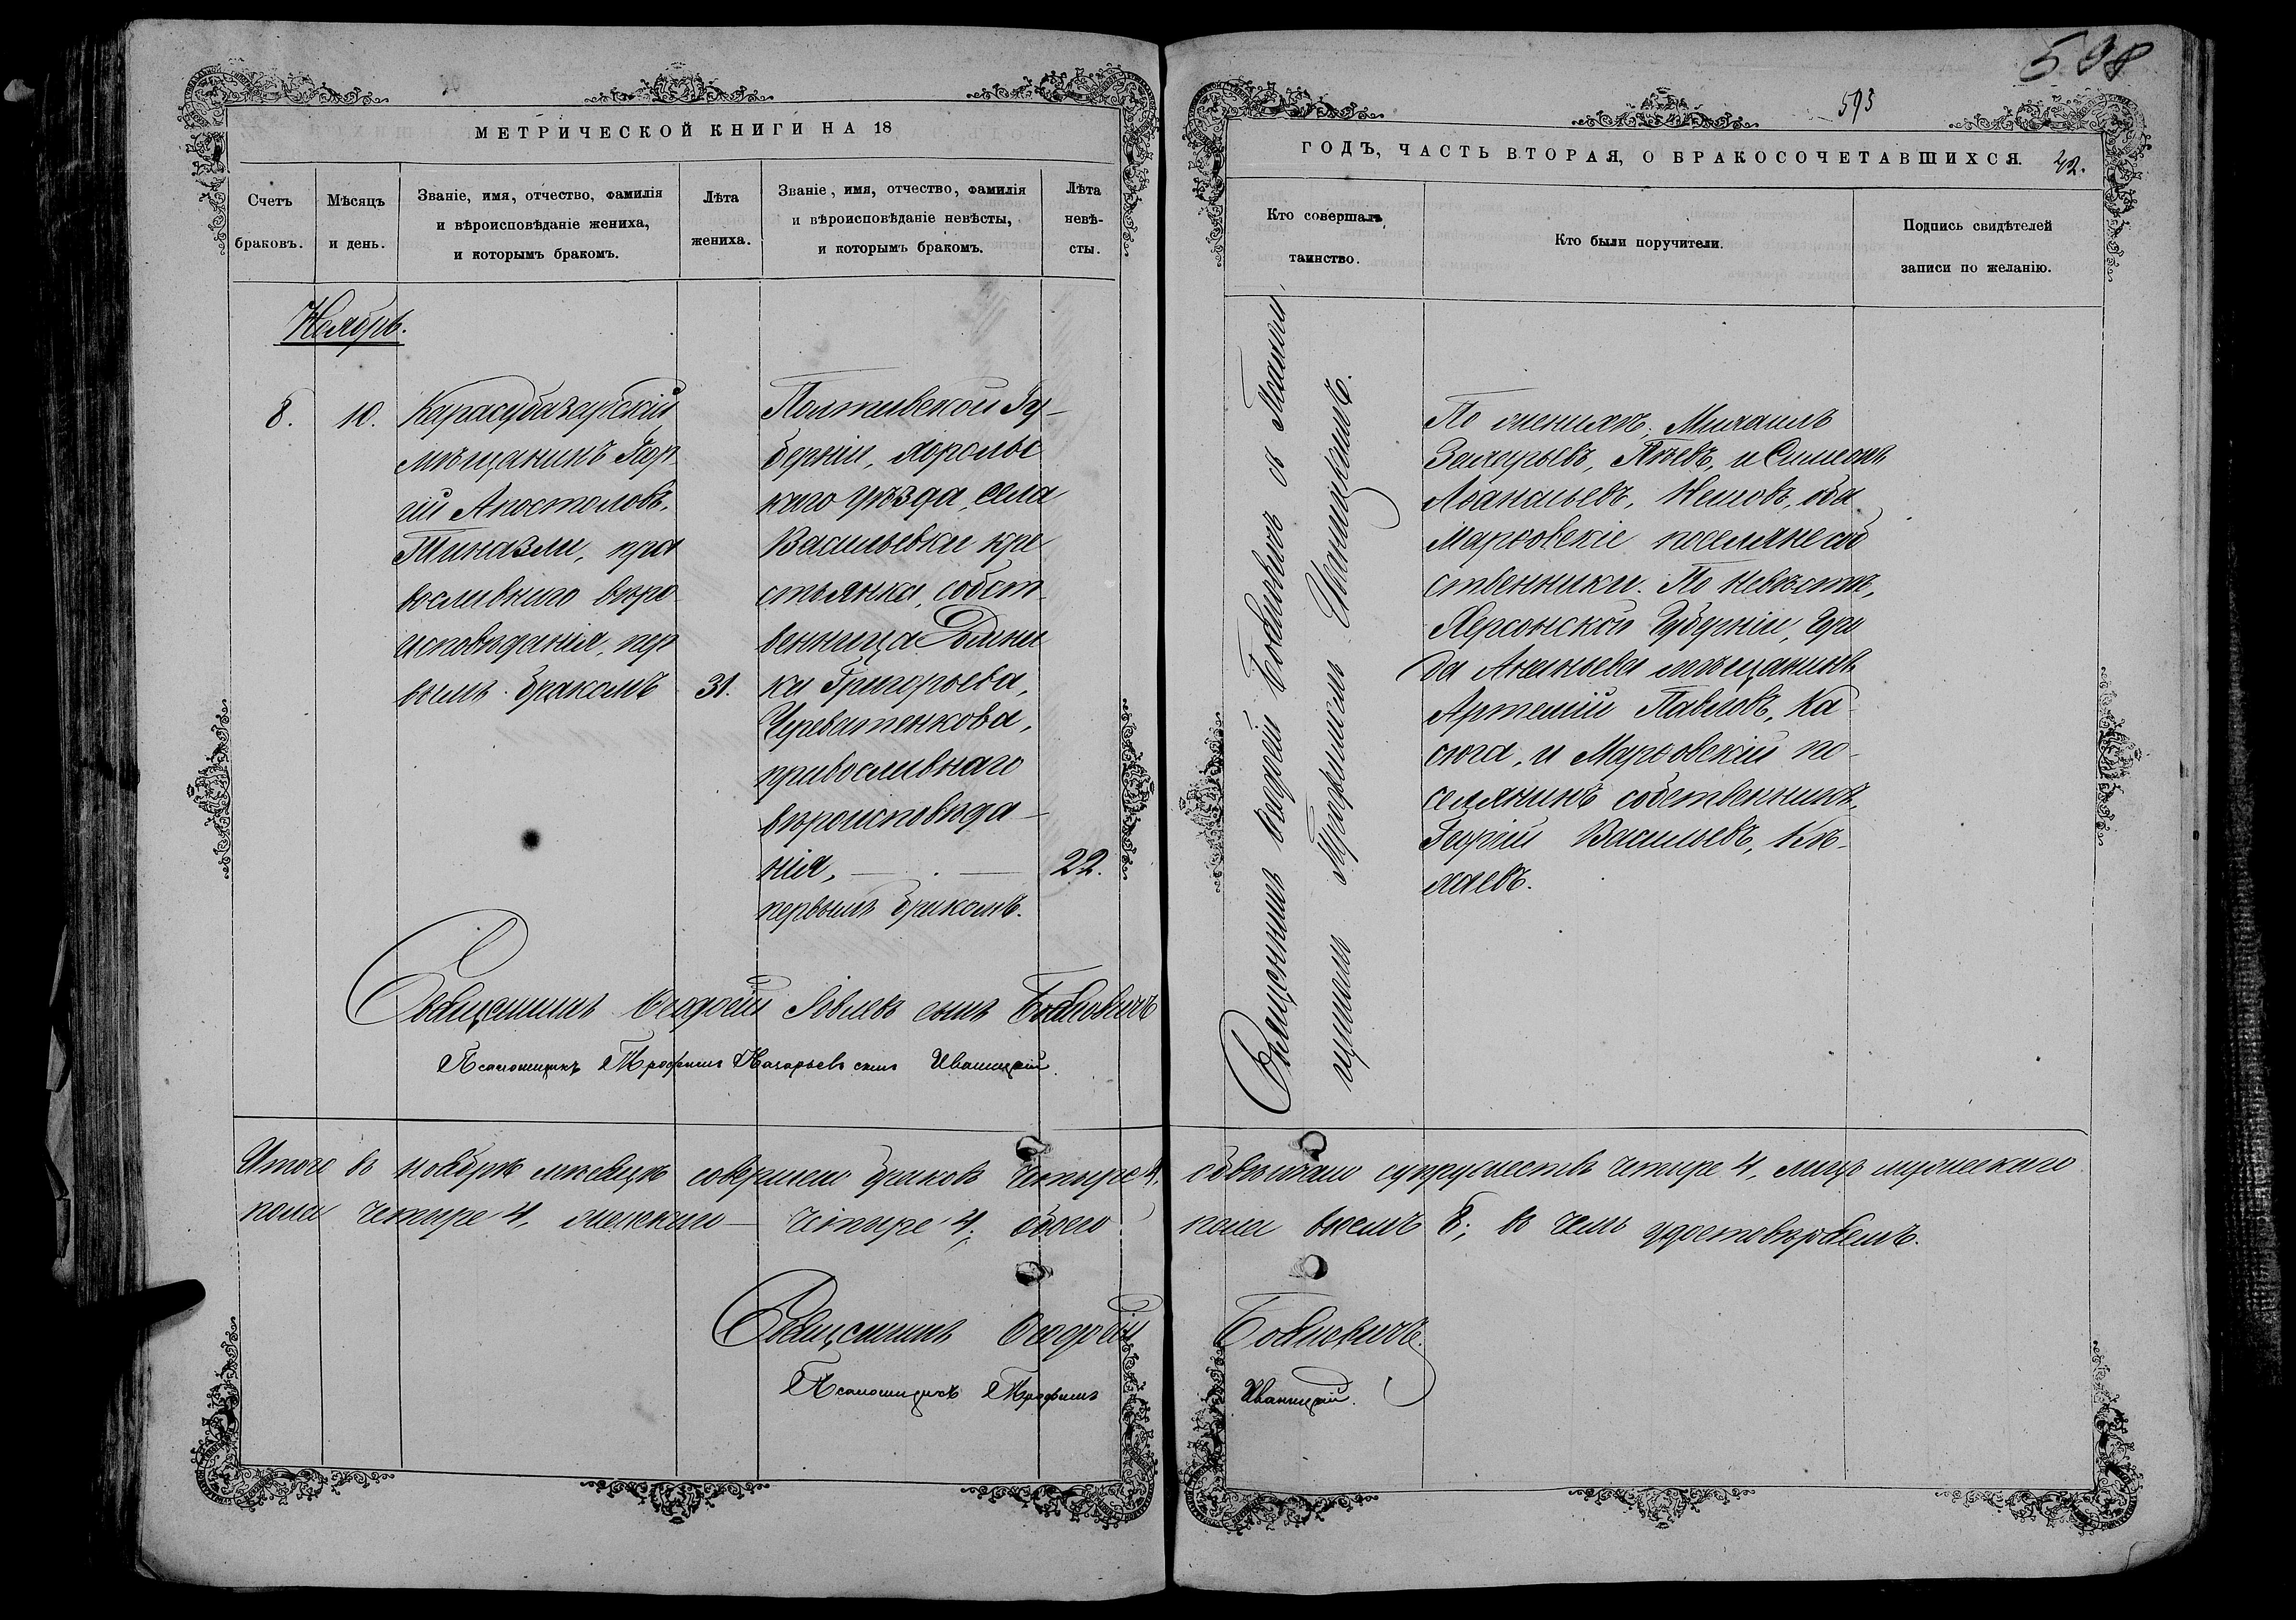 598
593
МЕТРИЧЕСКОЙ КНИГИ НА 18
ГОДЪ, ЧАСТЬ ВТОРАЯ, О БРАКОСОЧЕТАВШИХСЯ.
42.
Счетъ браковъ.
Мѣсяцъ и день.
Званіе, имя, отчество, фамилія
и вѣроисповѣданіе жениха,
и которымъ бракомъ.
Лѣта жениха.
Званіе, имя, отчество, фамилія
и вѣроисповѣданіе невѣсты,
и которымъ бракомъ.
Лѣта невѣ-
сты.
Кто совершалъ
таинство.
Кто были поручители.
Подпись свидѣтелей
записи по желанію.
Ноябрь.
8.
10.
Карасубазарскій
мѣщанинъ Геор
гій Апостоловъ,
пра
вославнаго вѣро
исповѣданія, пер
вымъ бракомъ
31.
Полтавской Гу-
берніи, Хорольс
каго уѣзда, села
Васильевки кре
стьянка, собст
венница Домни
ка Григорьева,
Череватенкова,
православнаго
вѣроисповѣда-
нія,
первымъ бракомъ.
22.
Священникъ Бойновичъ
Трофимомъ Иваницкимъ.
По женихѣ: Михаилъ
Захарьевъ, и Симеонъ
Аѳанасьевъ, оба
Марковскіе поселяне соб
ственники. По невѣстѣ,
Херсонской Губерніи, Горо
да Ананьева мѣщанинъ
Артемій Павловъ, Ка
сюга, и Марковскій по-
селянинъ собственникъ,
Георгій Васильевъ,
хаевъ.
Священникъ Іовлевъ сынъ Бойновичъ
Псаломщикъ Трофимъ Назарьевъ сынъ Иваницкій.
Итого въ ноябрѣ мѣсяцѣ совершено браковъ четыре 4. супружествъ четыре 4, лицъ мужескаго
пола четыре 4, женскаго — четыре 4; обоего пола восемь 8; въ чемъ удостовѣряемъ.
Священникъ Бойновичъ.
Псаломщикъ Трофимъ Иваницкій.